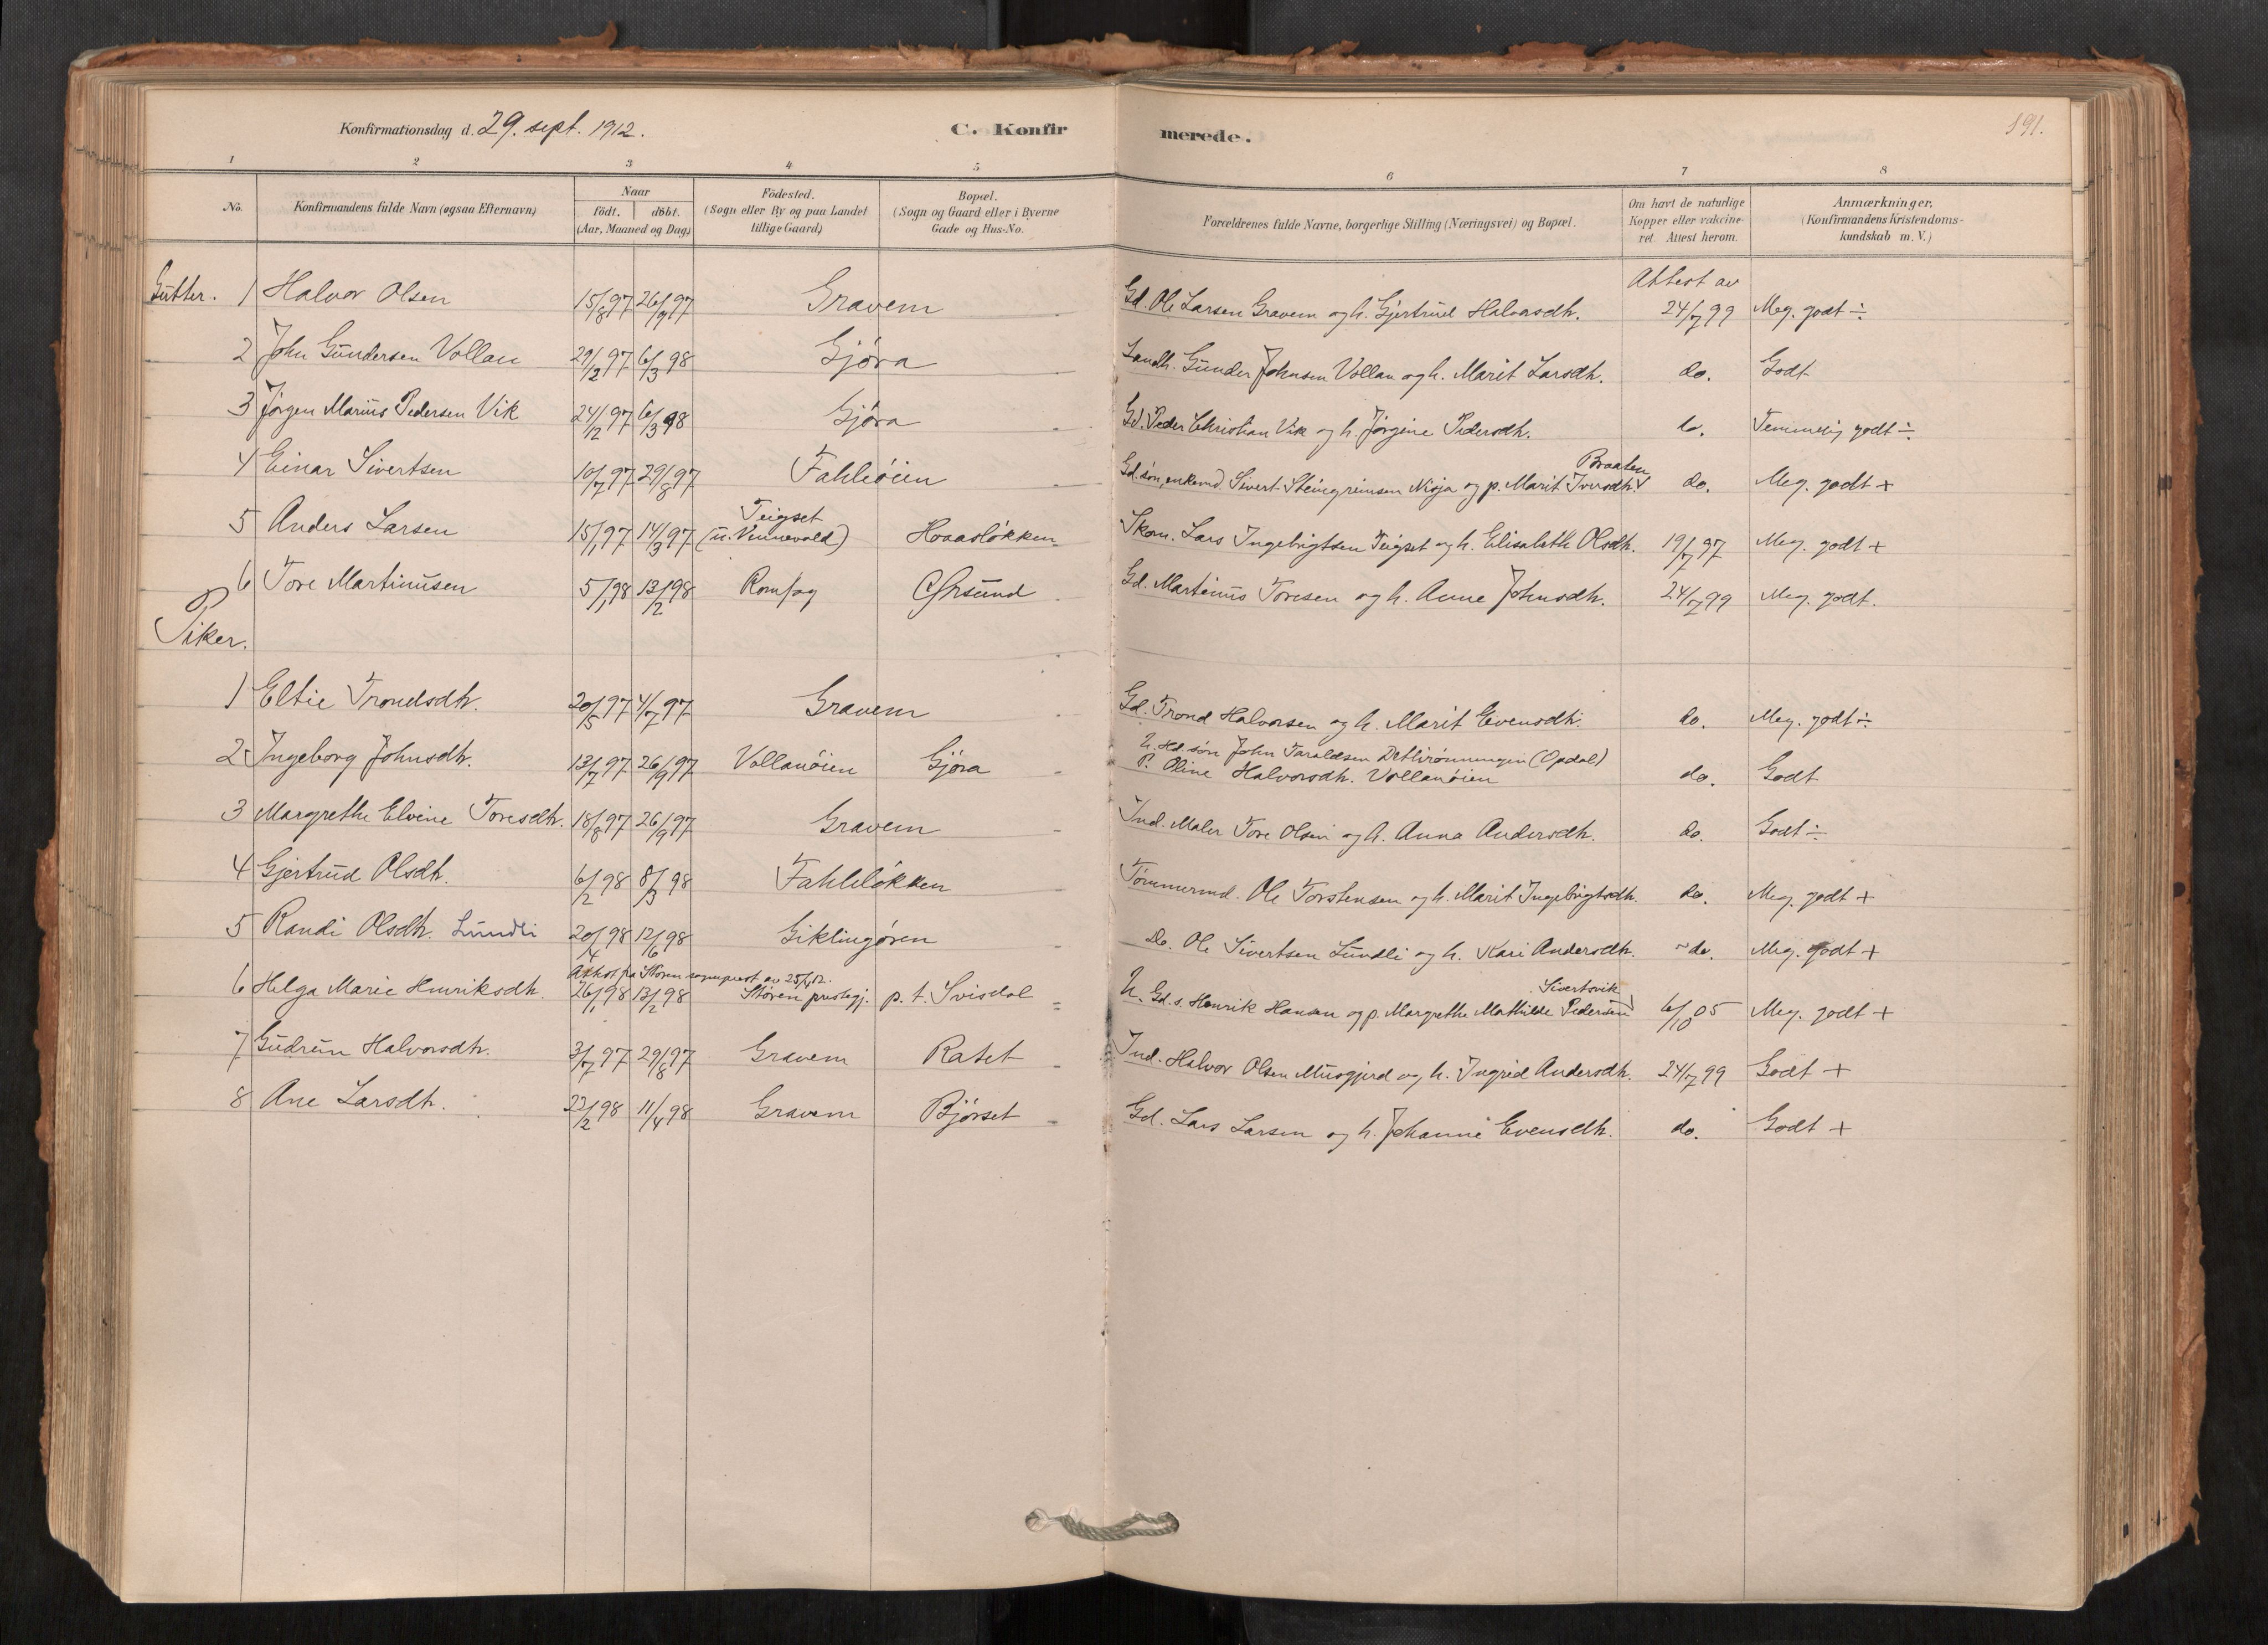 Konfirmationsdag d. 29. sept. 1912. C. Konfirmerede. 191.
1 2 3 4 5 6 7 8
No. Konfirmandens fulde Navn (ogsaa Efternavn) Naar födt. döbt. (Aar, Maaned og Dag) Födested. (Sogn eller By og paa Landet tillige Gaard) Bopæl. (Sogn og Gaard eller i Byerne Gade og Hus-No. Forældrenes fulde Navne, borgerlige Stilling (Næringsvei) og Bopæl. Om havt de naturlige Kopper eller vakcineret. Attest herom. Anmærkninger. (Konfirmandens Kristendomskundskab m. V.)
Gutter. 1 Halvor Olsen 15/8 97 26/9 97 Gravem Gd. Ole Larsen Gravem og h. Gjertrud Halvorsdtr. Attest av 24/7 99 Meg. godt ÷
2 John Gundersen Vollan 29/12 97 6/3 98 Gjöra Landh. Gunder Johnsen Vollan og h. Marit Larsdtr. do. Godt
3 Jörgen Marius Pedersen Vik 24/12 97 6/3 98 Gjöra Gd. Peder Christian Vik og h. Jörgine Pedersdtr. do. Temmelig godt ÷
4 Einar Sivertsen 10/7 97 29/8 97 Fahleöien Gd. sön, enkemd. Sivert Steingrimsen Nisja og p. Marit Iversdtr. Braaten do. Meg. godt +
5 Anders Larsen 15/1 97 14/3 97 Teigset (u. Vennevold) Hoaaslökken Skom. Lars Ingebrigtsen Teigset og h. Elisabeth Olsdtr. 19/7 97 Meg. godt +
6 Tore Martinusen 5/1 98 13/2 98 Romfog Grsund Gd. Martinus Toresen og h. Anne Johnsdtr. 24/7 99 Meg. godt.
Piker.
1 Eltie Trondsdtr. 20/5 97 4/7 97 Gravem Gd. Trond Halvorsen og h. Marit Evensdtr. do. Meg. godt ÷
2 Ingeborg Johnsdtr. 13/7 97 26/9 97 Vollanöien Gjöra U. Gd. sön John Taraldsen Detlirönningen (Opdal)
P. Oline Halvorsdtr. Vollanöien do. Godt
3 Margrethe Elvine Toresdtr. 18/8 97 26/9 97 Gravem Ind. Maler Tore Olsen og h. Anna Andersdtr. do. Godt ÷
4 Gjertrud Olsdtr. 6/2 98 8/3 98 Fahlelökken Tömmermd. Ole Torstensen og h. Marit Ingebrigtsdtr. do. Meg. godt +
5 Randi Olsdtr. Lundli 20/4 98 12/6 98 Giklingören Do. Ole Sivertsen Lundli og h. Kari Andersdtr. do. Meg. godt +
Attest fra Stören sogneprest av 25/4 12.
6 Helga Marie Henriksdtr. 26/1 98 13/2 98 Stören prestegj. p. t. Svisdal U. Gd. s. Henrik Hansen og p. Margrethe Mathilde Pedersen Sivertsvik 6/10 05 Meg. godt +
7 Gudrun Halvorsdtr. 3/7 97 29/8 97 Gravem Ratet Ind. Halvor Olsen Musgjerd og h. Ingrid Andersdtr. 24/7 99 Godt +
8 Ane Larsdtr. 22/2 98 11/4 98 Gravem Björset Gd. Lars Larsen og h. Johanne Evensdtr. do. Godt +